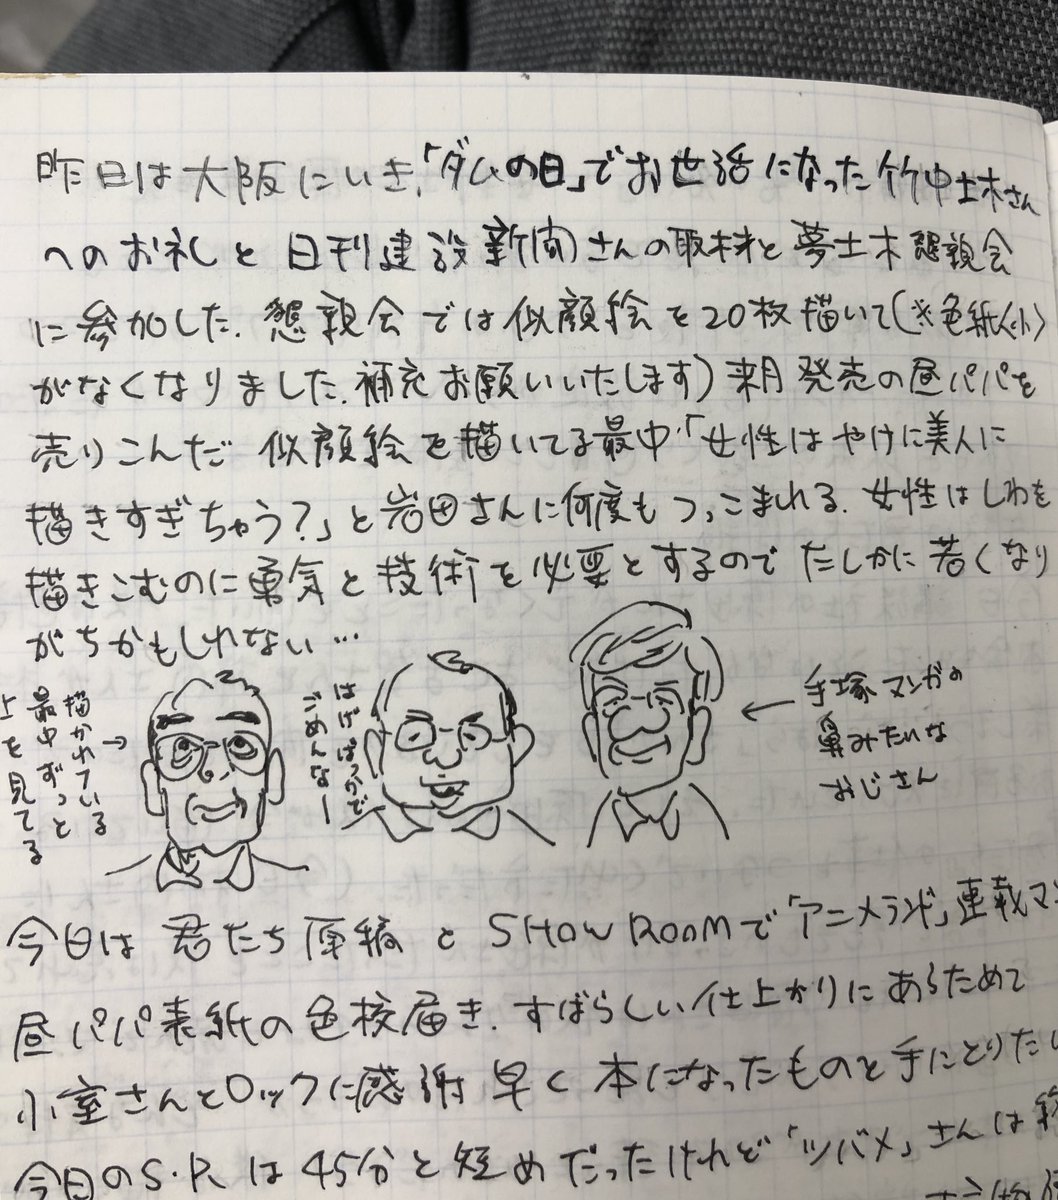 昨日は大阪にいき、「ダムの日」でお世話になった竹中土木さん
へのお礼と日刊建設新聞さんの取材と夢土木懇親会
に参加した. 懇親会では似顔絵を20枚描いて(※色紙(小)
がなくなりました. 補充お願いいたします)来月発売の昼パパを
売りこんだ 似顔絵を描いてる最中「女性はやけに美人に
描きすぎちゃう?」と岩田さんに何度もつっこまれる. 女性はしわを
描きこむのに勇気と技術を必要とするのでたしかに若くなり
がちかもしれない…
描かれている
最中ずっと
上を見てる
はげばっかで
ごめんなー
手塚マンガの
鼻みたいな
おじさん
今日は君たち原稿とSHOWROOMで「アニメランド」連載マン
昼パパ表紙の色校届き. すばらしい仕上がりにあらためて
小室さんとロックに感謝 早く本になったものを手にとりたい
今日のS.R.は45分と短めだったけれど「ツバメ」さんは